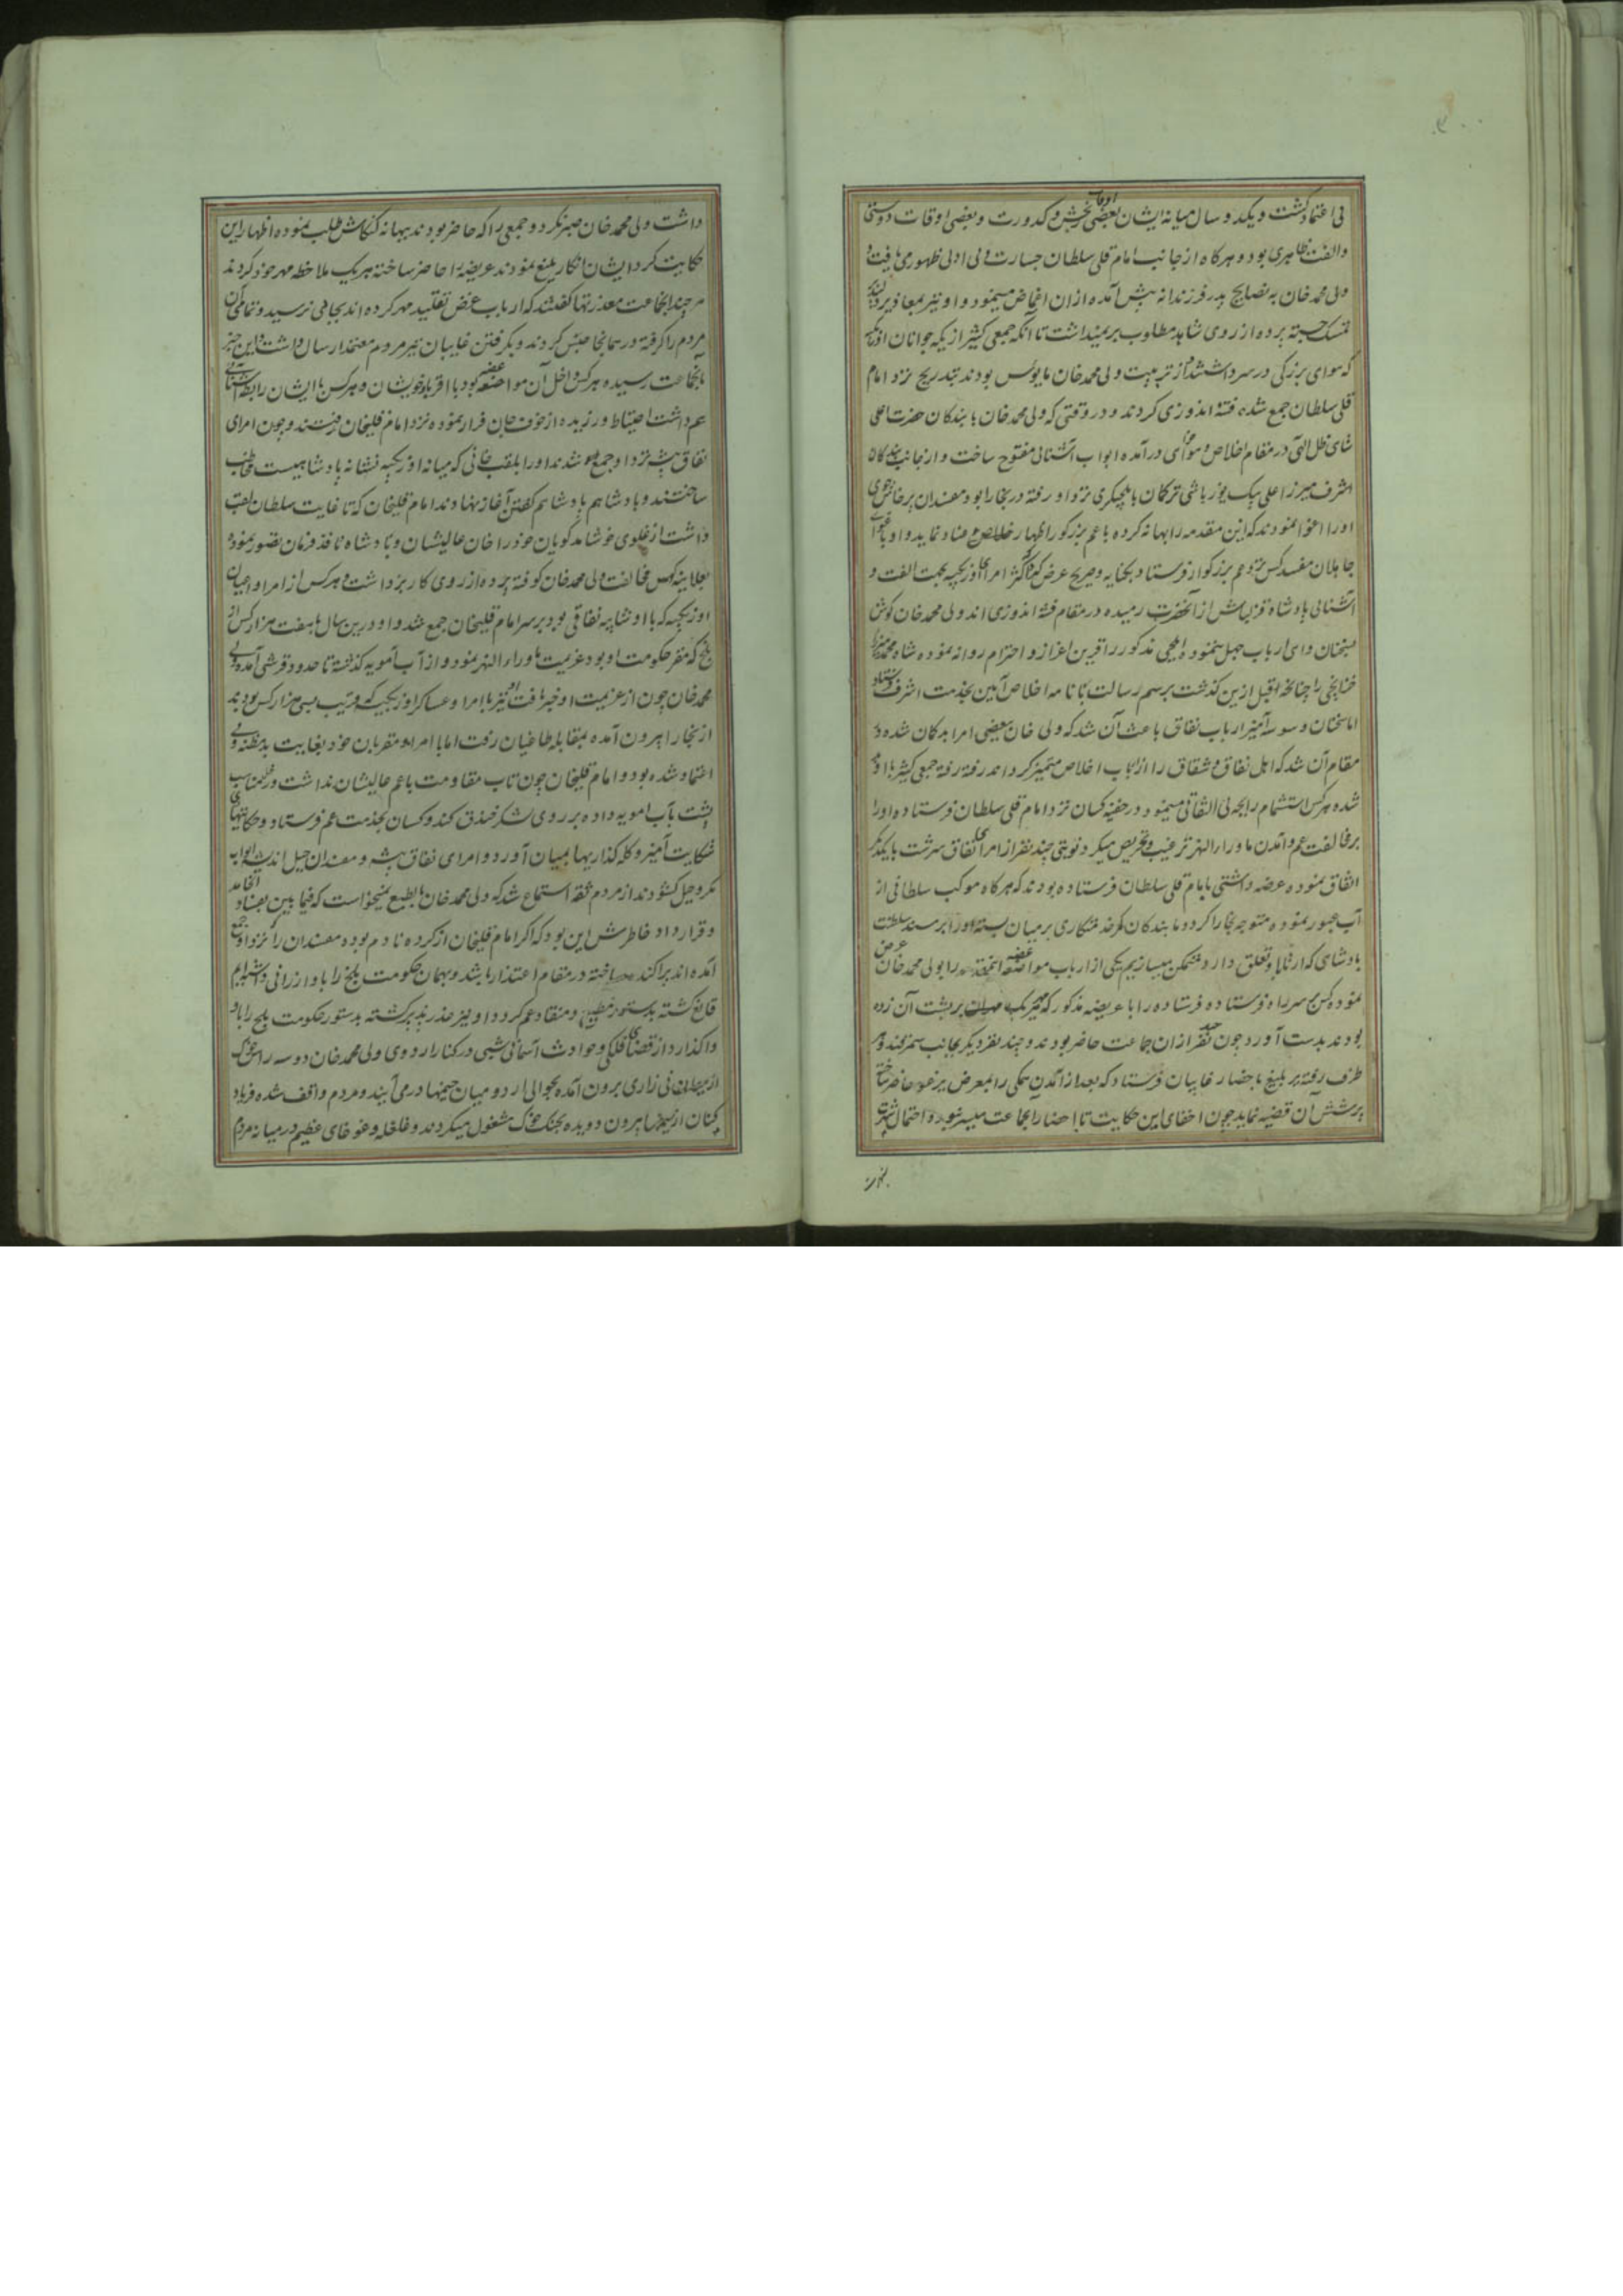 بی اعتماد گشت و یکدو سال میانه ایشان بعضی اوقات رنجش و کدورت و بعضی اوقات دوستی
و الفت ظاهری بود و هرکاه از جانب امام قلی سلطان جسارت و بی ادبی ظهوری یافت
ولی محمد خان به نصایح پدر فرزندانه پیش آمده ازان اغماض مینمود و او نیز بمعاذیر
تمسک جسته پرده از روی شاهد مطلوب برنمیداشت تا آنکه جمعی کثیر از یکه جوانان اوزبک
که هوای بزرکی در سر داشتند و از تربیت ولی محمد خان مایوس بودند بتدریج نزد امام
قلی سلطان جمع شده فتنه اندوزی کردند و در وقتی که ولی محمد خان با بندکان حضرت اعلی
شاهی ظل الهی در مقام اخلاص و درآمده ابواب آشنائی مفتوح ساخت و از جانب بندکان
اشرف میرزا علی بیک یوزباشی ترکمان بایلچیکری نزد او رفته در بخارا بود مفسدان پرخاش جوی
او را اغوا نمودند که این مقدمه را بهانه کرده با عم بزرکوار اظهار عناد نماید و او باغوای
جاهلان مفسد کس نزد عم بزرکوار فرستاد بکنایه و صریح عرض کرد که اکثر امرای اوزبکیه بجهت الفت و
آشنائی پادشاه قزلباش از آنحضرت رمیده در مقام فتنه اندوزی اند ولی محمد خان کوش
بسخنان ارباب جهل ننموده ایلچی مذکور را قرین اعزاز و احترام روانه نموده شاه محمد میرزا
را چنانچه قبل ازین کذشت برسم رسالت با نامه اخلاص آیین بخدمت اشرف فرستاد
اما سخنان وسوسه آمیز ارباب نفاق باعث آن شد که ولی خان ببعضی امرا بدکمان شده در
مقام آن شد که اهل نفاق و شقاق را از ارباب اخلاص متمیز کرداند رفته رفته جمعی کثیر با او
شده هرکس استشمام رایحه بی التفاتی مینمود در خفیه کسان نزد امام قلی سلطان فرستاده او را
بر مخالفت عم و آمدن ماوراء النهر ترغیب و تحریص میکرد نوبتی چند نفر از امرای نفاق سرشت با یکدیکر
اتفاق نموده عرضه داشتی بامام قلی سلطان فرستاده بودند که هرکاه موکب سلطانی از
آب عبور نموده متوجه بخارا کردد ما بندکان کمر خدمتکاری بر میان بسته او را بر مسند سلطنت
پادشاهی که ارثا باو تعلق دارد متمکن میسازیم یکی از ارباب مواضعه این مقدمه را بولی محمد خان عرض
نموده کس بر سر راه فرستاده فرستاده را با عریضه مذکور که مهر یک یک بر پشت آن زده
بودند بدست آورد چون چند نفر ازان جماعت حاضر بودند و چند نفر دیکر بجانب سمرقند و هر
طرف رفته بر بلیغ باحضار غایبان فرستاد که بعد از آمدن همکی را بمعرض یرغو حاضر ساخته
پرسش آن قضیه نماید چون اخفای این حکایت تا احضار آن جماعت میسر نبود و احتمال شهرت
داشت ولی محمد خان صبر نکرد و جمعی را که حاضر بودند ببهانه کنکاش طلب نموده اظهار این
حکایت کرد ایشان انکار بلیغ نمودند عریضه را حاضر ساخته هر یک ملاحظه مهر خود کردند
هر چند آن جماعت معذرتها کفتند که ارباب غرض تقلید مهر کرده اند بجائی نرسید و تمامی آن
مردم را کرفته در همانجا حبس کردند و بکرفتن غایبان نیز مردم معتمد ارسال داشت و این خبر
بآنجماعت رسیده هرکس داخل آن مواضعه بود با اقربا و خویشان و هرکس با ایشان رابطه آشنائی
هم داشت احتیاط ورزیده از خوف جان فرار نموده نزد امام قلیخان رفتند و چون امرای
نفاق پیشه نزد او جمع شدند او را بلقب خانی که میانه اوزبکیه نشانه پادشاهیست مخاطب
ساختند و پادشاهم پادشاهم کفتن آغاز نهادند امام قلیخان که تا غایت سلطان لقب
داشت از غلوی خوشامد کویان خود را خان عالیشان و پادشاه نافذ فرمان تصور نموده
بعلانیه کوس مخالفت ولی محمد خان کوفته پرده از روی کار برداشت و هرکس از امرا و اعیان
اوزبکیه که با او شایبه نفاقی بود بر سر امام قلیخان جمع شد و او درین سال با هفت هزار کس از
بلخ که مقر حکومت او بود عزیمت ماوراء النهر نمود و از آب آمویه کذشته تا حدود قرشی آمد ولی
محمد خان چون از عزیمت او خبر یافت او نیز با امرا و عساکر اوزبکیه که قریب بسی هزار کس بودند
از بخارا بیرون آمده بمقابله طاغیان رفت اما با امرا و مقربان خود بغایت بدمظنه و بی
اعتماد شده بود و امام قلیخان چون تاب مقاومت با عم عالیشان نداشت
پشت بآب آمویه داده بر روی لشکر خندق کند و کسان بخدمت عم فرستاد و حکایتهای
شکایت آمیز و کله کذاریها بمیان آورد و امرای نفاق پیشه و مفسدان حیل اندیشه ابواب
مکر و حیل کشودند از مردم ثقه استماع شد که ولی محمد خان بالطبع نمیخواست که فیما بین بفساد انجامد
و قرارداد خاطرش این بود که اکر امام قلیخان از کرده نادم بوده مفسدان را که نزد او جمع
آمده اند پراکنده ساخته در مقام اعتذار باشد و بهمان حکومت بلخ را باو ارزانی داشته
قانع کشته بدستور مطیع و منقاد عم کردد او نیز عذر پذیر کشته بدستور حکومت بلخ را باو
واکذارد از قضای فلکی و حوادث آسمانی شبی در کنار اردوی ولی محمد خان دو سه راس خوک
از میان نی زاری برون آمده بحوالی اردو میان خیمها درمی آیند و مردم واقف شده فریاد
کنان از خیمها بیرون دویده بجنک خوک مشغول میکردند و غلغله و غوغای عظیم در میانه مردم